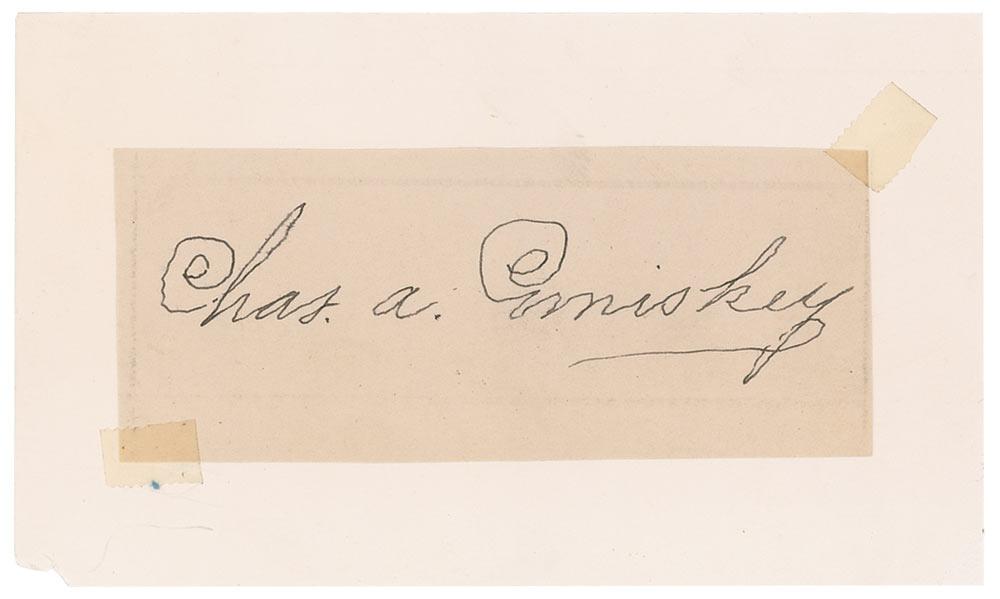 Chas. a. Comiskey